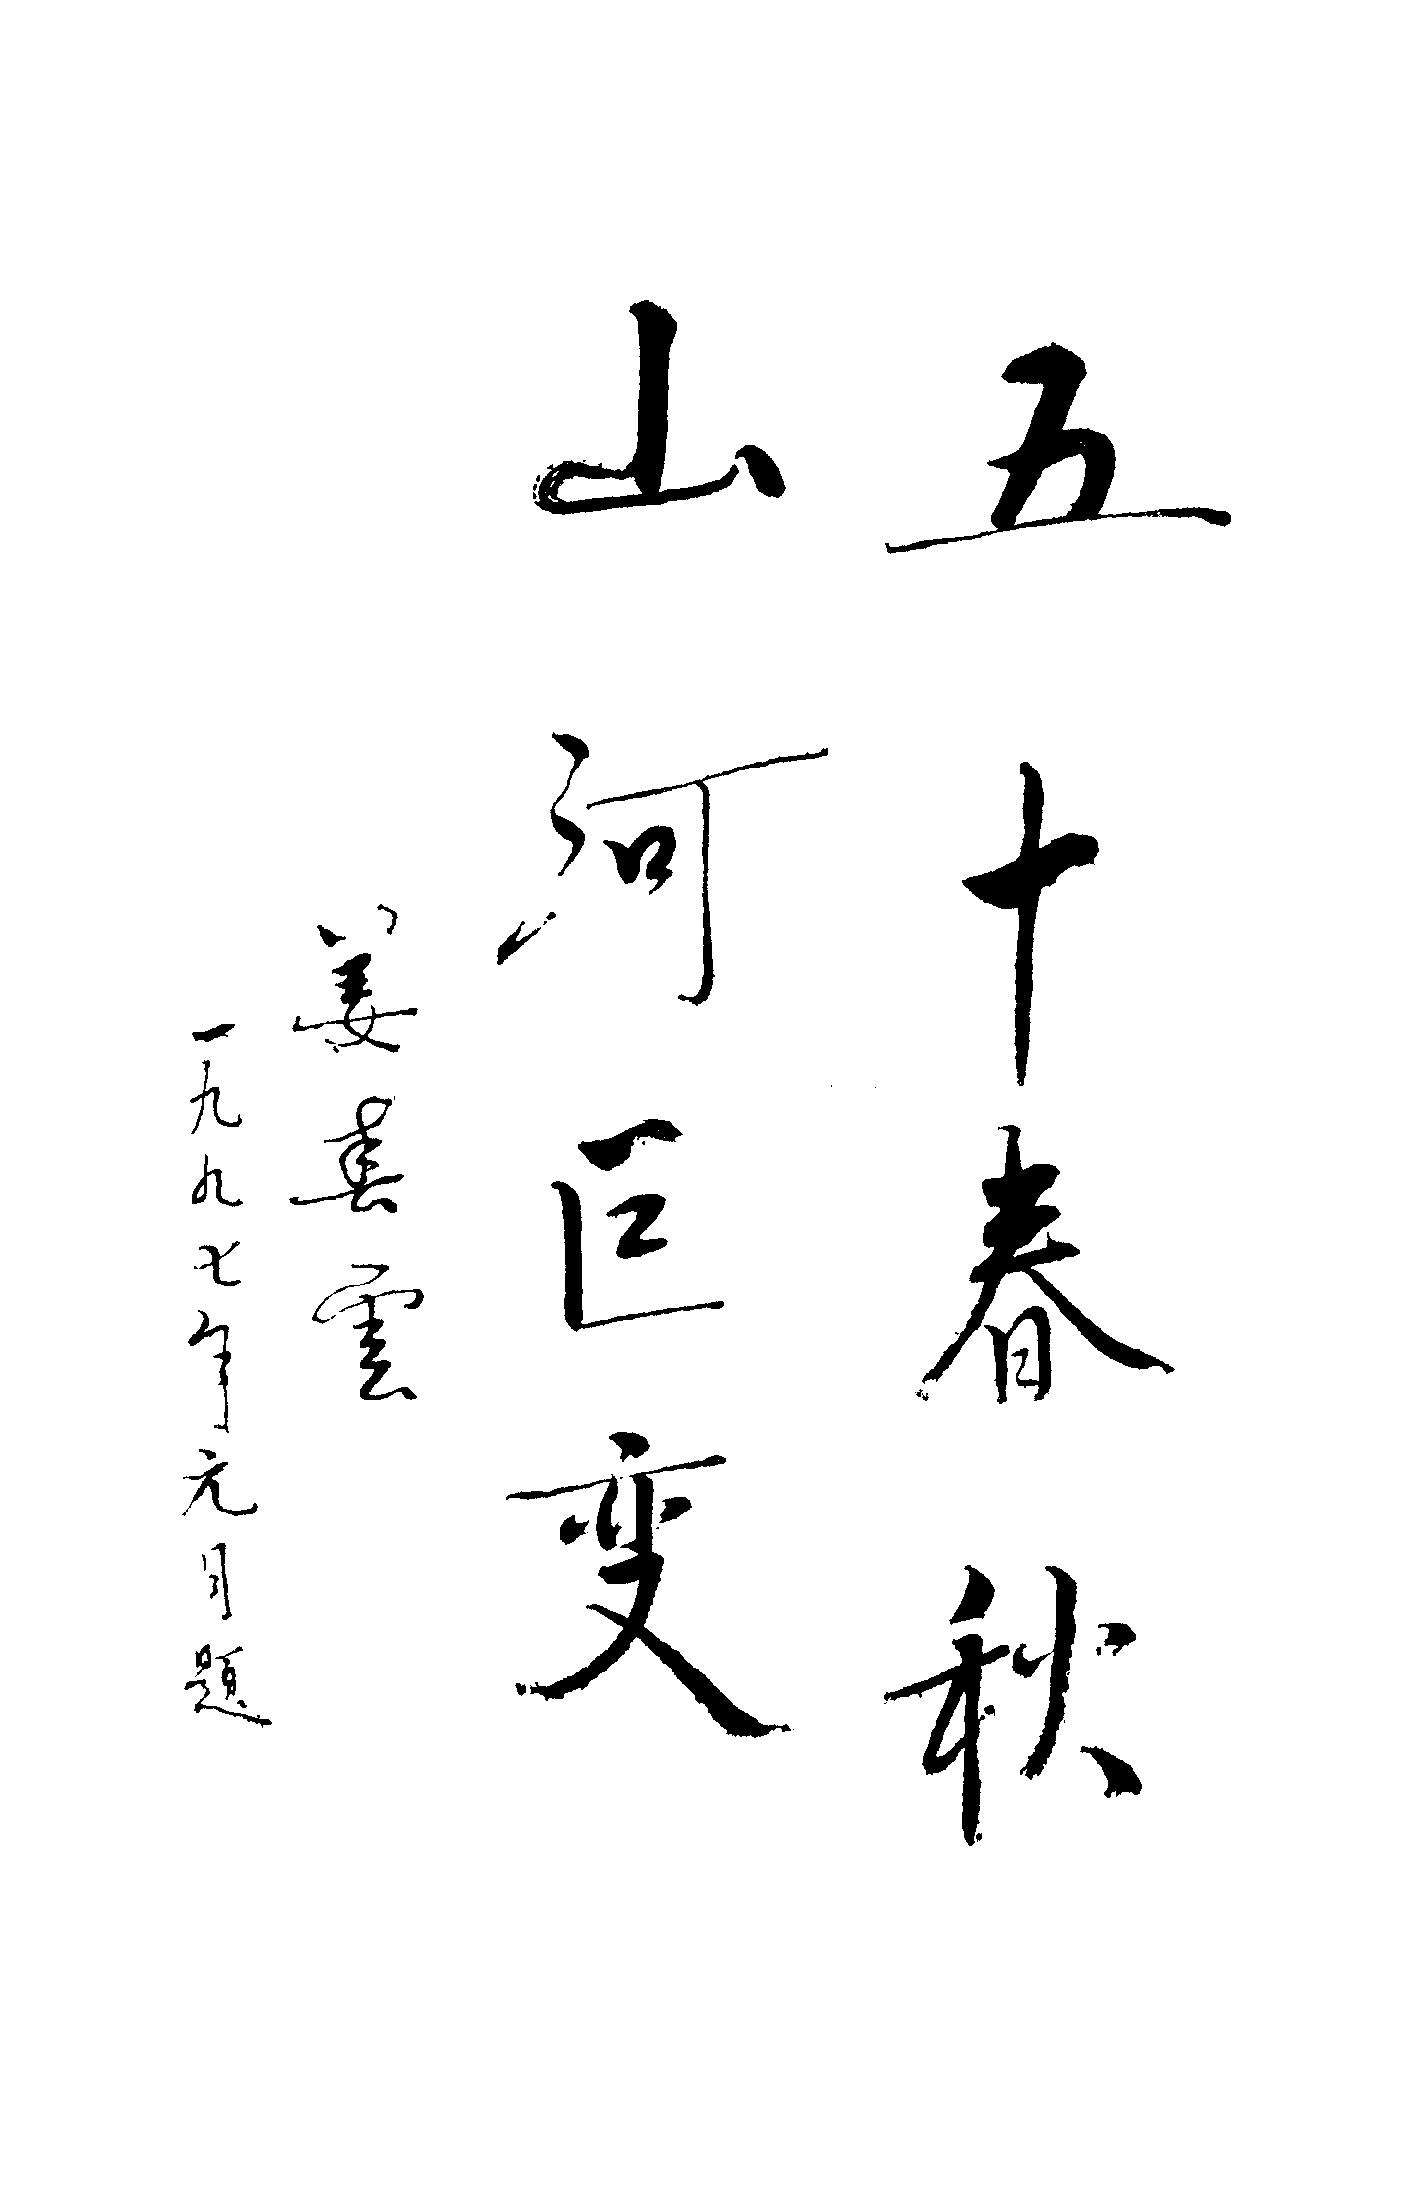 五十春秋
山河巨变
姜春雲
一九九七年元月题